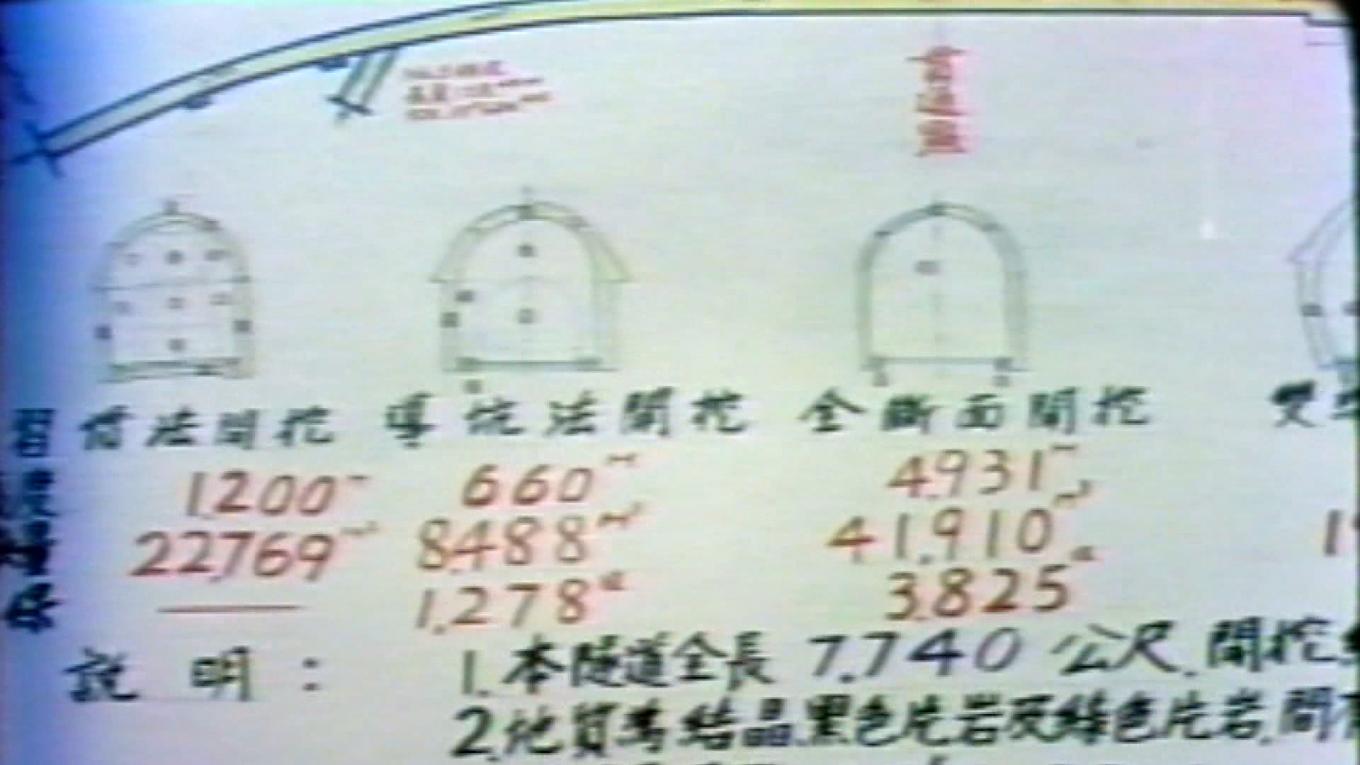 習慣法開挖 導坑法開挖 全斷面開挖 雙
1,200ᵐ 660ᵐ 4,931ᵐ
22,769ᵐ³ 8,488ᵐ³ 41,910ᵐ³ 1
1,278 3,825
說明：
1. 本隧道全長 7,740 公尺. 開挖
2. 地質為結晶黑色片岩及綠色片岩. 間有